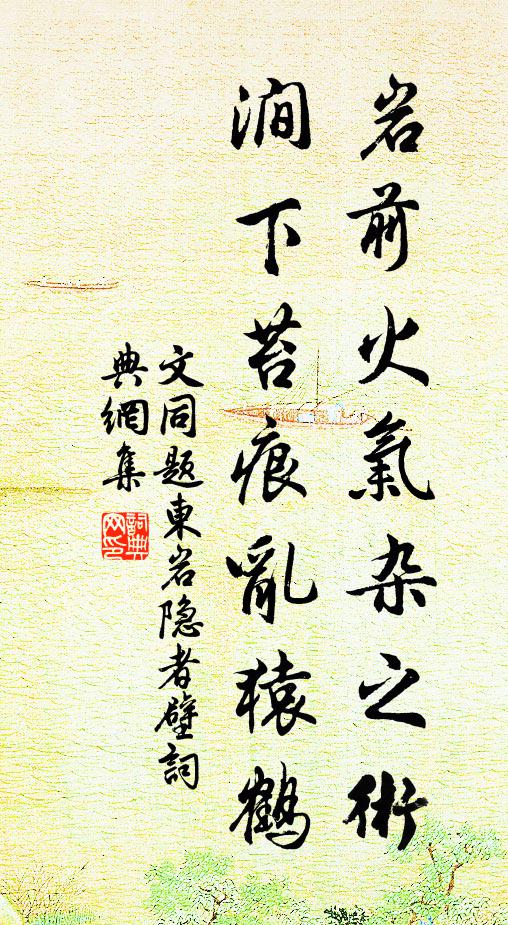 岩前火氣杂之術
澗下苔痕亂猿鶴
文同題東岩隐者壁詞
典網集
詞典
网印